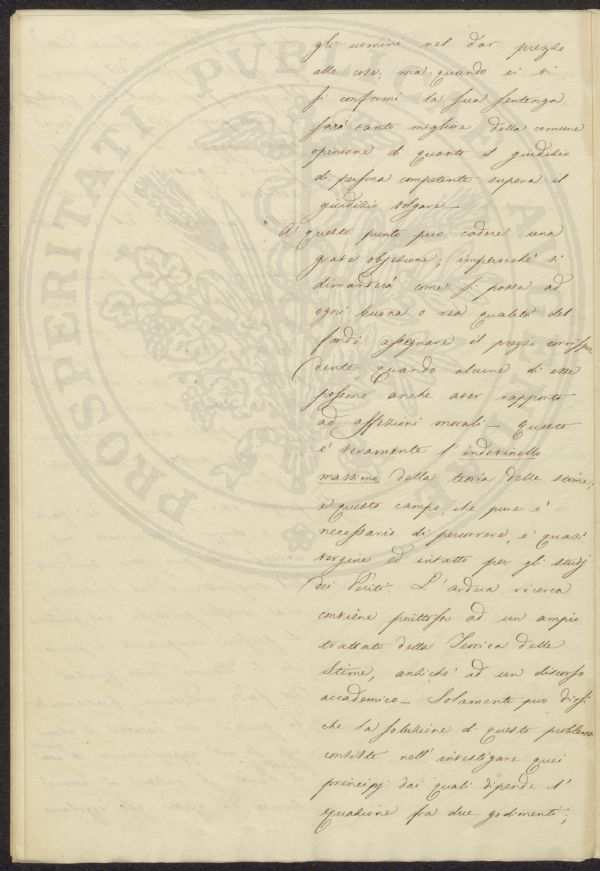 gli uomini nel dar prezzo
alle cose; ma quando ei vi
si conformi la sua sentenza
sarà tanto migliore della comune
opinione di quanto il giudizio
di persona competente supera il
giudizio volgare_
A questo punto può cadere una
grave objezione; imperocchè si
dimanderà come si possa ad
ogni buona o rea qualità del
fondo assegnare il prezzo corrispon
dente, quando alcune di esse
possono anche aver rapporto
ad affezioni morali_ Questo
è veramente l'indovinello
massimo della teoria delle stime;
e questo campo, che pure è
necessario di percorrere, è quasi
vergine ed intatto per gli studj
dei Periti. L'ardua ricerca
conviene piuttosto ad un ampio
trattato della Teorica delle
Stime, anzichè ad un discorso
accademico_ Solamente può dirsi
che la soluzione di questo problema
consiste nell'investigare quei
principj dai quali dipende l'
equazione fra due godimenti;
PROSPERITATI PUBLICAE